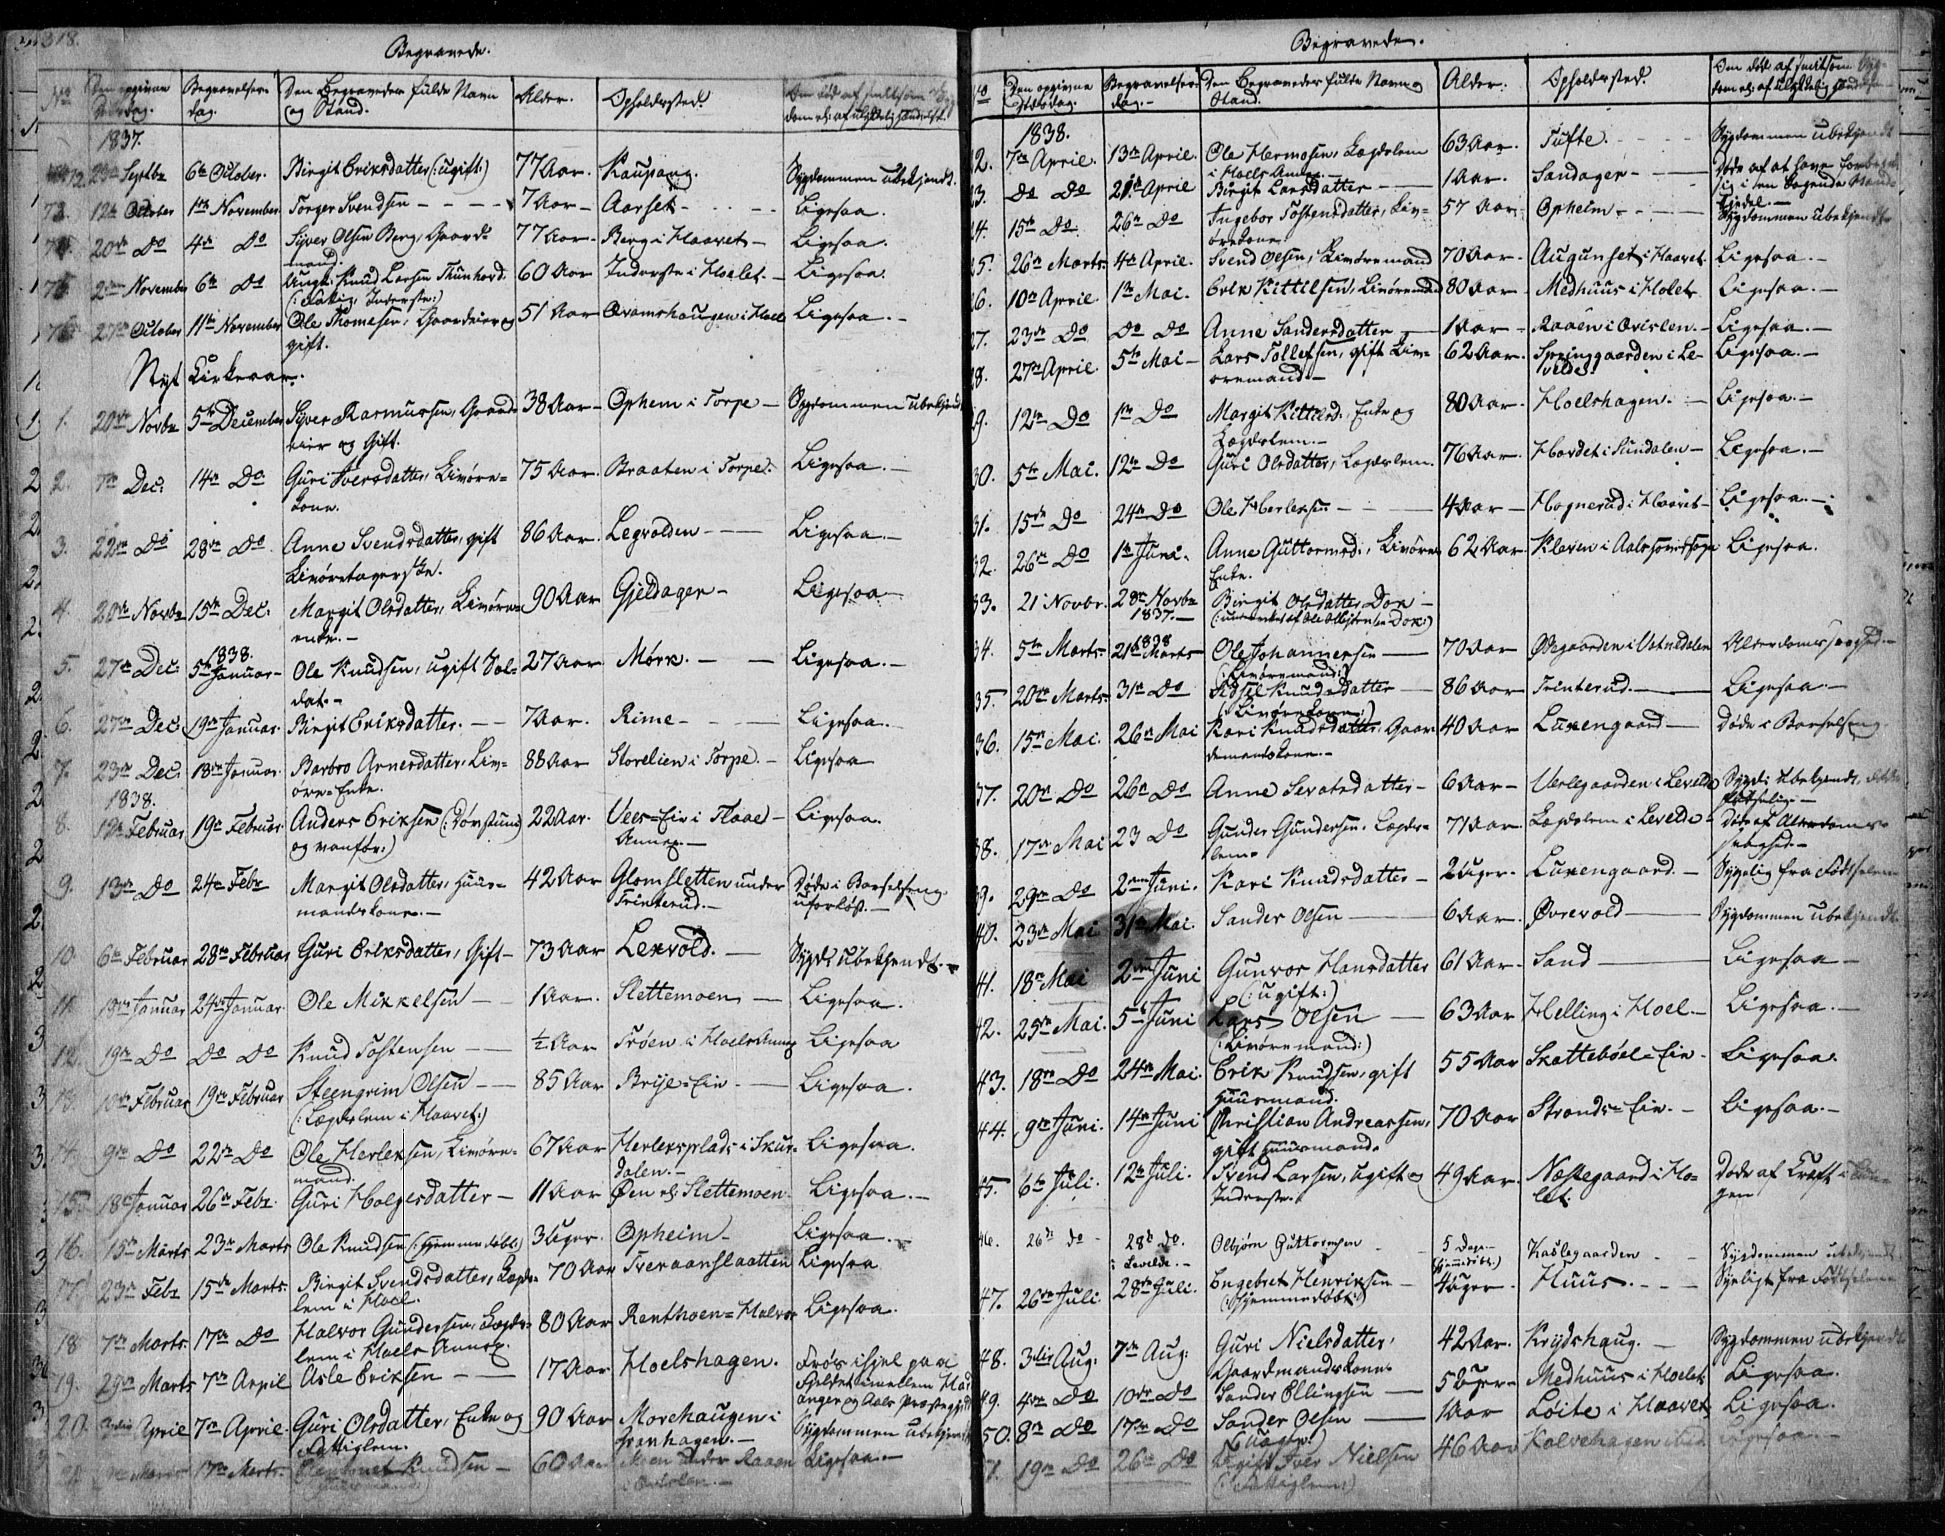 318.
Begravede.
No Den opgivne Dødsdag. Begravelses- dag. Den Begravedes fulde Navn og Stand. Alder. Opholdssted. Om død af smitsom Syg- dom el. af ulykkelig Hændelse.
1837.
72. 29de Septbr 6te October. Birgit Eriksdatter (: ugift:) 77 Aar. Kaupang. Sygdommen ubekjendt.
73. 12te October 1ste November Torger Svendsen 7 Aar Aarset Ligesaa.
74. 20de Do 4de Do Syver Olsen Berg, Gaard-
mand. 77 Aar. Berg i Haavet Ligesaa.
75. 2den November 6te Do Ungk. Knud Larsen
(: Fattig Inderste:) 60 Aar Inderste i Hoelet Ligesaa.
76. 27de October 11te November Ole Thomesen, Gaardeier og
gift. 51 Aar Qvamshaugen i Hoel Ligesaa.
Nyt Kirkeaar.
1. 20de Novbr 5te December Syver Rasmussen, Gaard-
eier og Gift. 38 Aar Ophem i Torpe Sygdommen ubekjendt
2. 7de Dec: 14de Do Guri Iversdatter, Livøre-
kone. 75 Aar. Braaten i Torpe. Ligesaa.
3. 22de Do 28de Do Anne Svendsdatter, gift
Livøretagerske. 86 Aar. Legvolden Ligesaa.
4. 20de Novbr 15de Dec: Margit Olsdatter, Livøre-
enke. 90 Aar Gjeldager Ligesaa
5. 27de Dec: 1838. 5te Januar Ole Knudsen, ugift Sol-
dat. 27 Aar Mørk. Ligesaa.
6. 27de Dec: 19de Januar. Birgit Eriksdatter. 7 Aar. Rime Ligesaa.
7. 23de Dec: 18de Januar. Barbro Arnesdatter, Liv-
øre-Enke. 88 Aar Storelien i Torpe Ligesaa
1838.
8. 12te Februar 19de Februar. Anders Eriksen (: Døvstum
og vanfør:) 22 Aar. Vees-Eie i Flaae
Annex. Ligesaa.
9. 13de Do 24de Febr Margit Olsdatter, Huus-
mandskone. 42 Aar Glomsletten under
Trinterud. Døde i Barselseng
uforløst.
10. 6te Februar 28de Februar Guri Eriksdatter, Gift 73 Aar Lexvold. Sygd: ubekjendt.
11. 18de Januar 24de Januar. Ole Mikkelsen 1 Aar. Slettemoen Ligesaa.
12. 19de Do Do Do Knud Tostensen ½ Aar Trøen i Hoels Annex Ligesaa
13. 10de Februar 19de Februar Steengrim Olsen
(: Lægdslem i Haavet:) 85 Aar Brije-Eie Ligesaa.
14. 9de Do 22de Do Ole Herleksen, Livøre-
mand. 67 Aar Herleksplads i Skur-
dalen. Ligesaa.
15. 18de Januar 26de Febr. Guri Holgesdatter 11 Aar Øen el. Slettemoen Ligesaa.
16. 15de Marts 23de Marts Ole Knudsen (: hjemmedøbt:) 3 Uger. Opheim Ligesaa.
17. 23de Febr 15de Marts. Birgit Svendsdatter, Lægds-
lem i Hoel. 70 Aar Tveraanslaatten Ligesaa
18. 7de Marts. 17de Do Halvor Gundersen, Lægds-
lem i Hoels Annex. 80 Aar Ligesaa.
19. 29de Marts 7de April Asle Eriksen 17 Aar Hoelshagen. Frøs ihjel paa
Fjeldet imellem Har-
anger og Aals Præstegjeld
20. 3die April 7de April. Guri Olsdatter, Enke og
Fattiglem. 90 Aar Morehaugen i
Granhagen. Sygdommen ubekjendt
21. 17de Marts. Knudsen 60 Aar Moen under Raaen Ligesaa.

Begravede.
No Den opgivne Dødsdag. Begravelses- dag. Den Begravedes fulde Navn og Stand. Alder. Opholdssted. Om død af smitsom Syg- dom el. af ulykkelig Hændelse.
1838.
22. 7de April. 13de April. Ole Hermosen, Lægdslem
i Hoels Annex. 63 Aar. Tufte. Sygdommen ubekjendt
23. Do Do 21de April Birgit Larsdatter 1 Aar. Sandager Døde af at have forbrændt
sig i en kogende Vand-
kjedel.
24. 15de Do. 26de Do Ingebor Tostensdatter, Liv-
ørekone. 57 Aar. Opheim. Sygdommen ubekjendt
25. 26de Marts 4de April. Svend Olsen, Livøremand 70 Aar. Augunset i Haavet. Ligesaa.
26. 10de April 1ste Mai. Erik Kittilsen, Livøremand 80 Aar Medhuus i Holet Ligesaa.
27. 23de Do Do Do Anne Sandersdatter 1 Aar Raaen i Qvislen. Ligesaa.
28. 27de April. 5te Mai Lars Tollefsen, gift Liv-
øremand. 62 Aar. Springgaarden i Le-
velde. Ligesaa.
29. 12te Do 1ste Do Margit Kittilsd., Enke og
Lægdslem. 80 Aar Hoelshagen. Ligesaa.
30. 5te Mai. 12te Do Guri Olsdatter, Lægdslem. 76 Aar. Hordet i Sundalen Ligesaa.
31. 15de Do 24de Do Ole Herleksen. 4 Aar Hognerud i Haavet Ligesaa.
32. 26de Do 1ste Juni. Anne Guttormsd., Livøre-
Enke. 62 Aar. Kleven i Aals Hovedsogn Ligesaa.
33. 21 Novbr. 28de Novbr
1837. Birgit Olsdatter Dok
34. 5te Marts. 1838 21de Marts Ole Johannessen
(: Livøremand:) 70 Aar Ødegaarden i Vatsdalen Alderdomssvaghed.
35. 20de Marts 31te Do Sidsel Knudsdatter
(: Livørekone:) 86 Aar Trinterud. Ligesaa.
36. 15de Mai. 26de Mai Kari Knudsdatter, Gaar-
demandskone. 40 Aar Luxengaard Døde i Barselseng
37. 20de Do 26de Do Anne Sevatsdatter 6 Aar Verlegaarden i Levelde Sygd: ubekjendt,
38. 17de Mai 23 Do Gunder Gundersen, Lægds-
lem. 71 Aar Lægdslem i Levelde Døde af Alderdoms-
svaghed.
39. 29de Do 2den Juni. Kari Knudsdatter 2 Uger. Luxengaard. Sygelig fra Fødselen
40. 23de Mai 31te Mai. Sander Olsen 6 Aar. Øvrevold Sygdommen ubekjendt.
41. 18de Mai 2den Juni Gunvor Hansdatter
(: ugift:) 61 Aar. Sand Ligesaa
42. 25de Mai. 5te Juni Lars Olsen
(: Livøremand:) 63 Aar Helling i Hoel Ligesaa.
43. 18de Do 24de Mai. Erik Knudsen, gift
Huusmand. 55 Aar Skattebøel-Eie Ligesaa.
44. 9de Juni. 14de Juni Christian Andreassen,
gift Huusmand. 70 Aar Strands-Eie. Ligesaa.
45. 6te Juli. 12te Juli. Svend Larsen, ugift og
Inderste. 49 Aar. Næstegaard i Ho-
let. Døde af Kræft i
46. 26de do 28de do.
i Levelde. Olbjørn Guttormsen 5 Dage
(hjemmedøbt.) Kaslegaarden Sygdommen ubekjendt.
47. 26de Juli. 28de Juli. Engebret Henriksen
(: Hjemmedøbt:) 4 Uger Huus. Sygeligt fra Fødselen
48. 3die Aug. 7de Aug. Guri Nielsdatter,
Gaardmandskone 42 Aar. Krydshaug. Sygdommen ubekjendt
49. 4de Do 10de Do Sander Ellingsen 5 Uger Medhuus i Hoelet Ligesaa.
50. 8de Do 17de Do Sander Olsen 1 Aar Løite i Haavet Ligesaa.
51. 19de Do 26de Do Ugift Iver Nielsen
(: Fattiglem:) 46 Aar Kalvehagen Ligesaa.